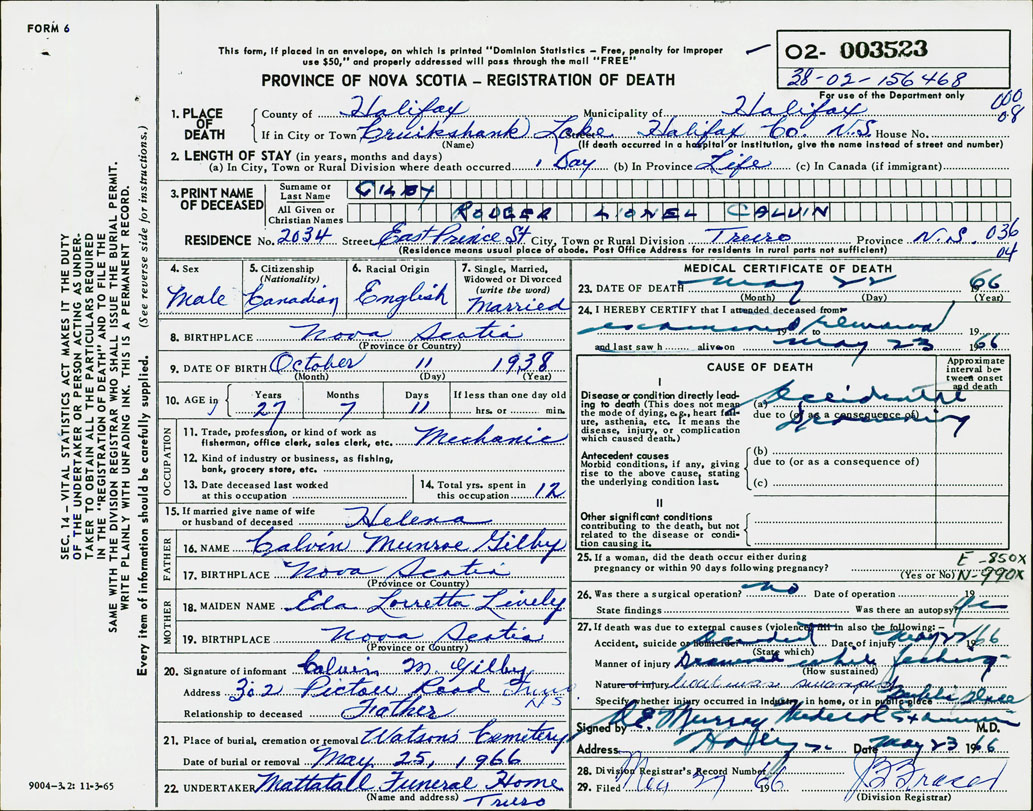 FORM 6
This form, if placed in an envelope, on which is printed "Dominion Statistics – Free, penalty for improper
use $50," and properly addressed will pass through the mail "FREE"
PROVINCE OF NOVA SCOTIA – REGISTRATION OF DEATH
02- 003523
38-02-156468
For use of the Department only
000
08
1. PLACE OF DEATH
County of Halifax Municipality of Halifax
If in City or Town Cruikshank Lake Halifax Co. N.S. House No.
(Name) (If death occurred in a hospital or institution, give the name instead of street and number)
2. LENGTH OF STAY (in years, months and days)
(a) In City, Town or Rural Division where death occurred 1 Day (b) In Province Life (c) In Canada (if immigrant)
3. PRINT NAME OF DECEASED
Surname or Last Name GILBY
All Given or Christian Names RODGER LIONEL CALVIN
RESIDENCE No. 2034 Street East Prince St City, Town or Rural Division Truro Province N.S. 036
04
(Residence means usual place of abode. Post Office Address for residents in rural parts not sufficient)
4. Sex Male
5. Citizenship (Nationality) Canadian
6. Racial Origin English
7. Single, Married, Widowed or Divorced (write the word) Married
8. BIRTHPLACE Nova Scotia
(Province or Country)
9. DATE OF BIRTH October 11 1938
(Month) (Day) (Year)
10. AGE in Years 27 Months 7 Days 11 If less than one day old hrs. or min.
OCCUPATION
11. Trade, profession, or kind of work as fisherman, office clerk, sales clerk, etc. Mechanic
12. Kind of industry or business, as fishing, bank, grocery store, etc.
13. Date deceased last worked at this occupation
14. Total yrs. spent in this occupation 12
15. If married give name of wife or husband of deceased Helena
FATHER
16. NAME Calvin Munroe Gilby
17. BIRTHPLACE Nova Scotia
(Province or Country)
MOTHER
18. MAIDEN NAME Eda Lorretta Lively
19. BIRTHPLACE Nova Scotia
(Province or Country)
20. Signature of informant Calvin M. Gilby
Address 302 Pictou Road Truro NS
Relationship to deceased Father
21. Place of burial, cremation or removal Watsons Cemetery
Date of burial or removal May 25, 1966
22. UNDERTAKER Mattatall Funeral Home
(Name and address) Truro
MEDICAL CERTIFICATE OF DEATH
23. DATE OF DEATH May 22 1966
(Month) (Day) (Year)
24. I HEREBY CERTIFY that I attended deceased from
examined 19 to 19
and last saw h alive on May 23 1966
CAUSE OF DEATH
Approximate interval between onset and death
I
Disease or condition directly leading to death (This does not mean the mode of dying, e.g., heart failure, asthenia, etc. It means the disease, injury, or complication which caused death.)
(a) Accidental
due to (or as a consequence of)
Drowning
Antecedent causes
Morbid conditions, if any, giving rise to the above cause, stating the underlying condition last.
(b)
due to (or as a consequence of)
(c)
II
Other significant conditions contributing to the death, but not related to the disease or condition causing it.
25. If a woman, did the death occur either during pregnancy or within 90 days following pregnancy?
(Yes or No)
E-850X
N-990X
26. Was there a surgical operation? no Date of operation 19
State findings Was there an autopsy? yes
27. If death was due to external causes (violence) fill in also the following: –
Accident, suicide or homicide accident Date of injury May 22 1966
(State which)
Manner of injury Drowned while fishing
(How sustained)
Nature of injury boat was swamped
Specify whether injury occurred in industry, in home, or in public place Public Place
Signed by Murray Medical Examiner M.D.
Address Hfx Date May 23 1966
28. Division Registrar's Record Number
29. Filed May 27 1966
(Division Registrar)
SEC. 14 – VITAL STATISTICS ACT MAKES IT THE DUTY
OF THE UNDERTAKER OR PERSON ACTING AS UNDER-
TAKER TO OBTAIN ALL THE PARTICULARS REQUIRED
IN THE "REGISTRATION OF DEATH" AND TO FILE THE
SAME WITH THE DIVISION REGISTRAR WHO SHALL ISSUE THE BURIAL PERMIT.
WRITE PLAINLY WITH UNFADING INK. THIS IS A PERMANENT RECORD.
Every item of information should be carefully supplied. (See reverse side for instructions.)
9004-3.2: 11-3-65